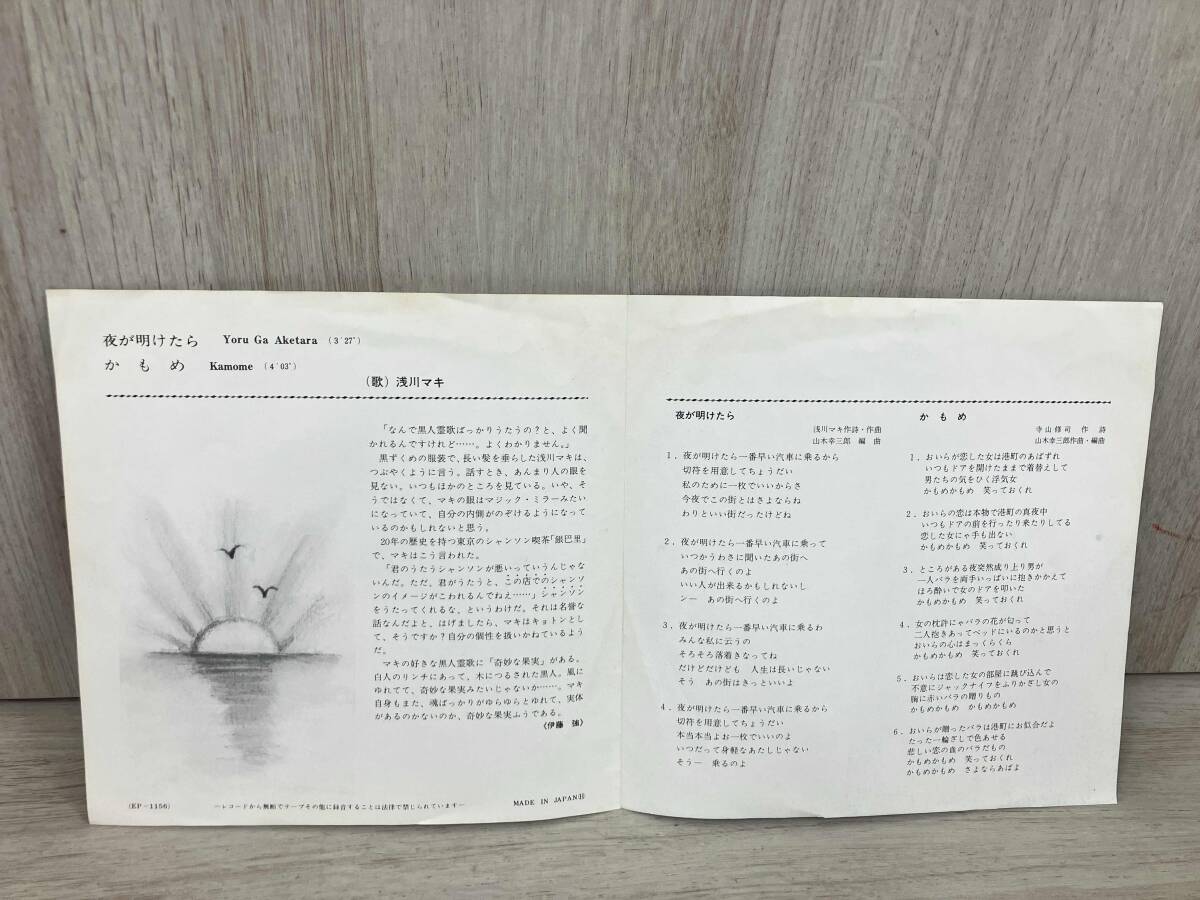 夜が明けたら Yoru Ga Aketara (3′27″)
かもめ Kamome (4′03″)
(歌) 浅川マキ
「なんで黒人霊歌ばっかりうたうの？と、よく聞
かれるんですけれど……。よくわかりません。」
黒ずくめの服装で、長い髪を垂らした浅川マキは、
つぶやくように言う。話すとき、あんまり人の眼を
見ない。いつもほかのところを見ている。いや、そ
うではなくて、マキの眼はマジック・ミラーみたい
になっていて、自分の内側がのぞけるようになって
いるのかもしれないと思う。
20年の歴史を持つ東京のシャンソン喫茶「銀巴里」
で、マキはこう言われた。
「君のうたうシャンソンが悪いっていうんじゃな
いんだ。ただ、君がうたうと、この店でのシャンソ
ンのイメージがこわれるんでねえ……」シャンソン
をうたってくれるな、というわけだ。それは名誉な
話なんだよと、はげましたら、マキはキョトンとし
て、そうですか？自分の個性を扱いかねているよう
だ。
マキの好きな黒人霊歌に「奇妙な果実」がある。
白人のリンチにあって、木につるされた黒人。風に
ゆれてて、奇妙な果実みたいじゃないか……。マキ
自身もまた、魂ばっかりがゆらゆらとゆれて、実体
があるのかないのか、奇妙な果実ふうである。
《伊藤 強》
(EP-1156)
―レコードから無断でテープその他に録音することは法律で禁じられています―
MADE IN JAPAN(H)
夜が明けたら
浅川マキ作詩・作曲
山木幸三郎 編 曲
1．夜が明けたら一番早い汽車に乗るから
切符を用意してちょうだい
私のために一枚でいいからさ
今夜でこの街とはさよならね
わりといい街だったけどね
2．夜が明けたら一番早い汽車に乗って
いつかうわさに聞いたあの街へ
あの街へ行くのよ
いい人が出来るかもしれないし
ンー あの街へ行くのよ
3．夜が明けたら一番早い汽車に乗るわ
みんな私に云うの
そろそろ落着きなってね
だけどだけども 人生は長いじゃない
そう あの街はきっといいよ
4．夜が明けたら一番早い汽車に乗るから
切符を用意してちょうだい
本当本当よお一枚でいいのよ
いつだって身軽なあたしじゃない
そうー 乗るのよ
かもめ
寺山修司 作 詩
山木幸三郎作曲・編曲
1．おいらが恋した女は港町のあばずれ
いつもドアを開けたままで着替えして
男たちの気をひく浮気女
かもめかもめ 笑っておくれ
2．おいらの恋は本物で港町の真夜中
いつもドアの前を行ったり来たりしてる
恋した女にゃ手も出ない
かもめかもめ 笑っておくれ
3．ところがある夜突然成り上り男が
一人バラを両手いっぱいに抱きかかえて
ほろ酔いで女のドアを叩いた
かもめかもめ 笑っておくれ
4．女の枕許にゃバラの花が匂って
二人抱きあってベッドにいるのかと思うと
おいらの心はまっくらくら
かもめかもめ 笑っておくれ
5．おいらは恋した女の部屋に跳び込んで
不意にジャックナイフをふりかざし女の
胸に赤いバラの贈りもの
かもめかもめ かもめかもめ
6．おいらが贈ったバラは港町にお似合だよ
たった一輪ざしで色あせる
悲しい恋の血のバラだもの
かもめかもめ 笑っておくれ
かもめかもめ さよならあばよ